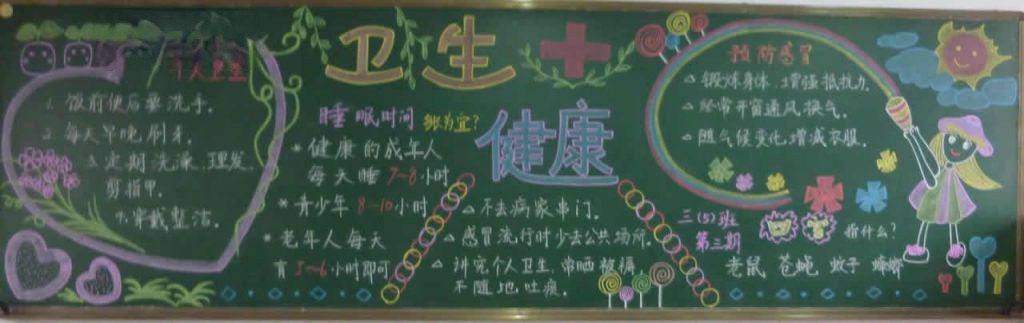 个人卫生
1. 饭前便后要洗手.
2. 每天早晚刷牙.
3. 定期洗澡、理发、
剪指甲.
4. 穿戴整洁.
卫生
健康
睡眠时间 多少为宜?
* 健康的成年人
每天睡7~8小时
* 青少年 8~10小时
* 老年人每天
有5~6小时即可
△ 不去病家串门.
△ 感冒流行时少去公共场所.
△ 讲究个人卫生,常晒被褥
不随地吐痰.
预防感冒
△ 锻炼身体、增强抵抗力.
△ 经常开窗通风、换气.
△ 随气候变化,增减衣服.
三(5)班
第三期
四害 指什么?
老鼠 苍蝇 蚊子 蟑螂